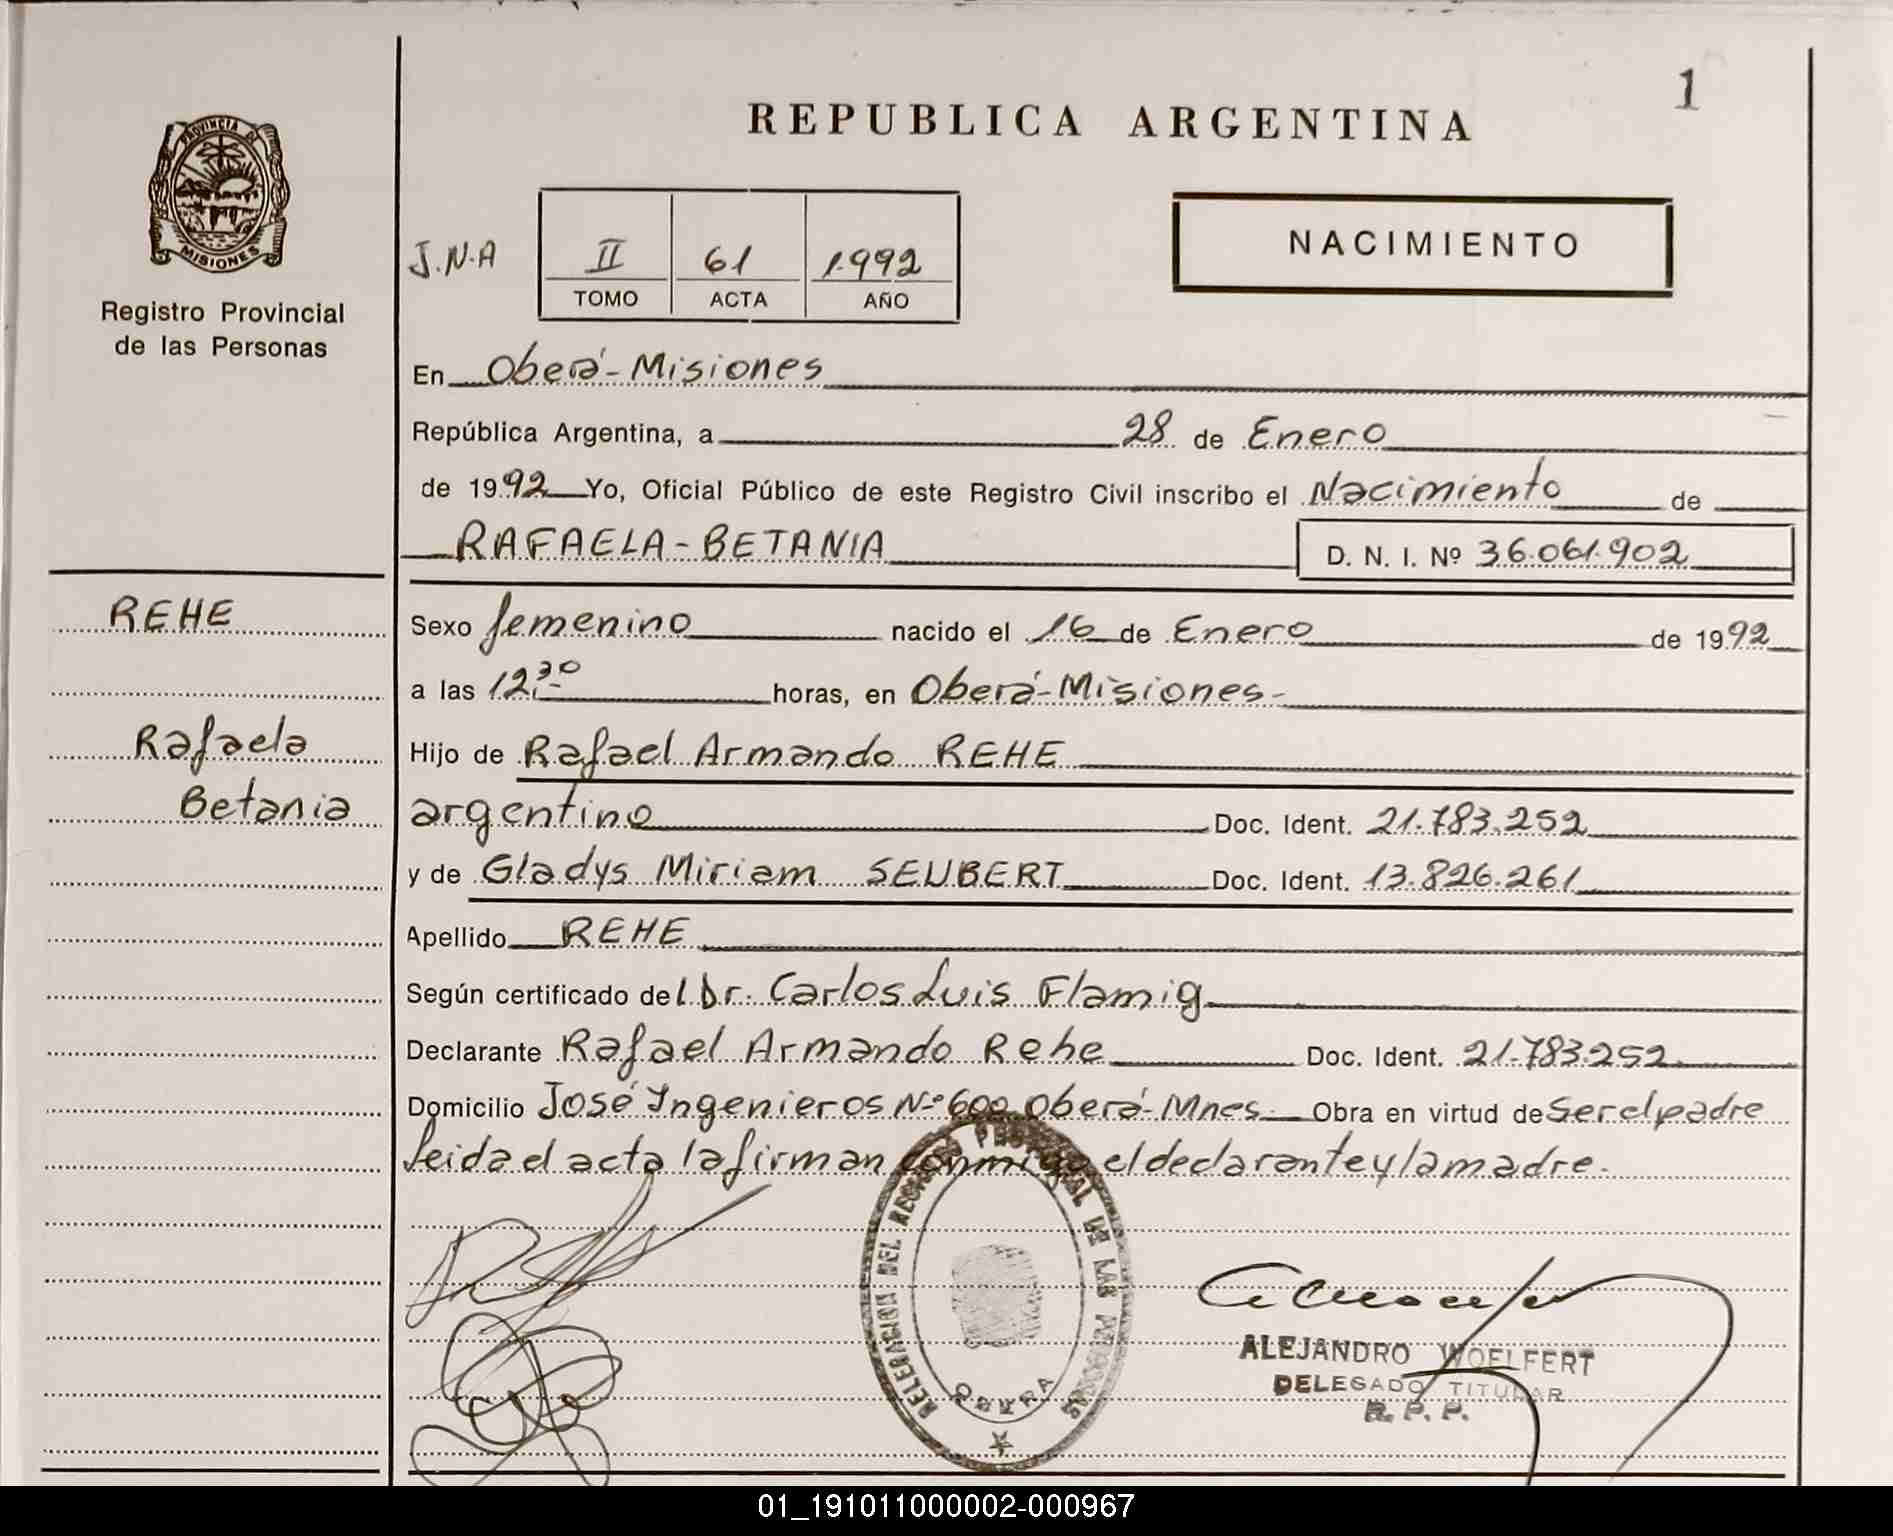 1
REPUBLICA ARGENTINA
PROVINCIA DE
MISIONES
Registro Provincial
de las Personas
J.N.A
II 61 1.992
TOMO ACTA AÑO
NACIMIENTO
En Oberá-Misiones
República Argentina, a 28 de Enero
de 1992 Yo, Oficial Público de este Registro Civil inscribo el Nacimiento de
RAFAELA-BETANIA D. N. I. Nº 36.061.902
REHE
Sexo femenino nacido el 16 de Enero de 1992
a las 12.30 horas, en Oberá-Misiones-
Rafaela
Hijo de Rafael Armando REHE
Betania
argentino Doc. Ident. 21.783.252
y de Gladys Miriam SEUBERT Doc. Ident. 13.826.261
Apellido REHE
Según certificado del Dr. Carlos Luis Flamig
Declarante Rafael Armando Rehe Doc. Ident. 21.783.252
Domicilio José Ingenieros Nº 600 Oberá-Mnes- Obra en virtud de Ser el padre
leida el acta la firman conmigo el declarante y la madre.
DELEGACION DEL REGISTRO PROVINCIAL DE LAS PERSONAS
OBERA
ALEJANDRO WOELFERT
DELEGADO TITULAR
R. P. P.
01_191011000002-000967